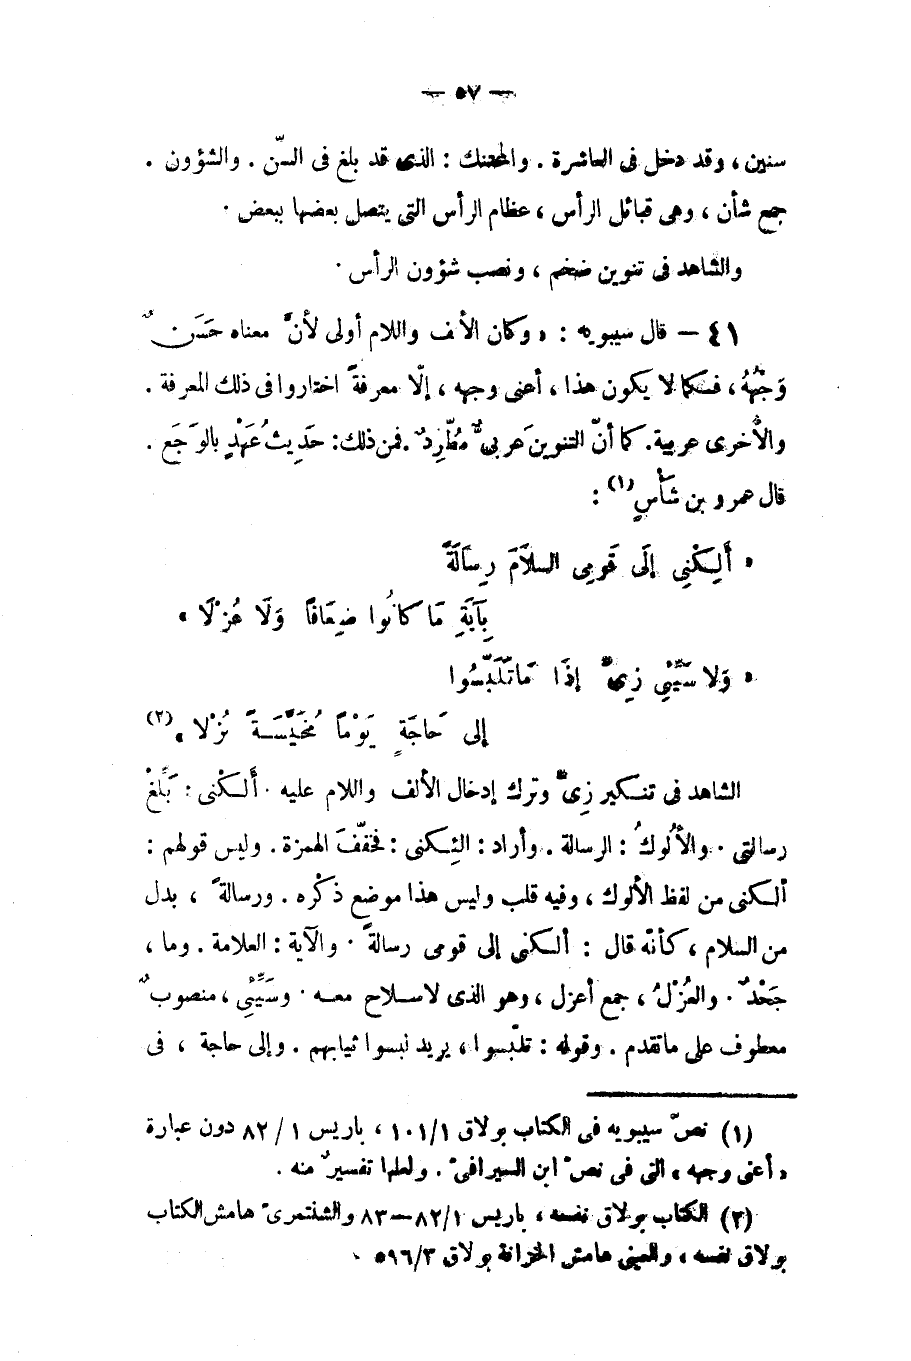 — ٥٧ —
سنين ، وقد دخل فى العاشرة . والمحتنك : الذى قد بلغ فى السّن . والشؤون .
جمع شأن ، وهى قبائل الرأس ، عظام الرأس التى يتصل بعضها ببعض .
والشاهد فى تنوين ضخم ، ونصب شؤون الرأس .
٤١ — قال سيبويه : « وكان الألف واللام أولى لأنّ معناه حَسَن ٌ
وَجْهُهُ ، فكما لا يكون هذا ، أعنى وجهه ، إلّا معرفةً اختاروا فى ذلك المعرفة .
والأُخرى عربية . كما أنّ التنوين عَربىٌّ مُطّرِدٌ . فمن ذلك : حَدِيثُ عَهْدٍ بالوَجَع .
قال عمرو بن شَأسٍ (١) :
« أَلِكْنِى إلَى قَومِى السلاَمَ رِسالَةً
بِآيَةِ مَا كانُوا ضِعَافاً وَلَا عُزْلَا »
« وَلا سَيِّئِى زِىٍّ إذَا مَا تَلَبَّسُوا
إلى حَاجَةٍ يَوْمًا مُخَيَّسَةً بُزْلا » (٢)
الشاهد فى تنكير زِىٍّ وترك إدخال الألف واللام عليه . أَلكْنى : بَلِّغْ
رسالتى . والأَلُوكُ : الرسالة . وأراد : ألئِكنى : فخفّفَ الهمزة . وليس قولهم :
ألكنى من لفظ الألوك ، وفيه قلب وليس هذا موضع ذكْره . ورسالةً ، بدل
من السلام ، كأنّه قال : ألكنى إلى قومى رسالةً . والآية : العلامة . وما ،
جَحْدٌ . والعُزْلُ ، جمع أعزل ، وهو الذى لا سلاح معه . وسَيِّئى ، منصوبٌ
معطوف على ما تقدم . وقوله : تلبّسوا ، يريد لبسوا ثيابهم . وإلى حاجة ، فى
(١) نصّ سيبويه فى الكتاب بولاق ١/١٠١ ، باريس ١/ ٨٢ دون عبارة
« أعنى وجهه » التى فى نصّ ابن السيرافىّ . ولعلها تفسيرٌ منه .
(٢) الكتاب بولاق نفسه ، باريس ١/٨٢—٨٣ والشنتمرىّ هامش الكتاب
بولاق نفسه ، والعينى هامش الخزانة بولاق ٣/٥٩٦ .